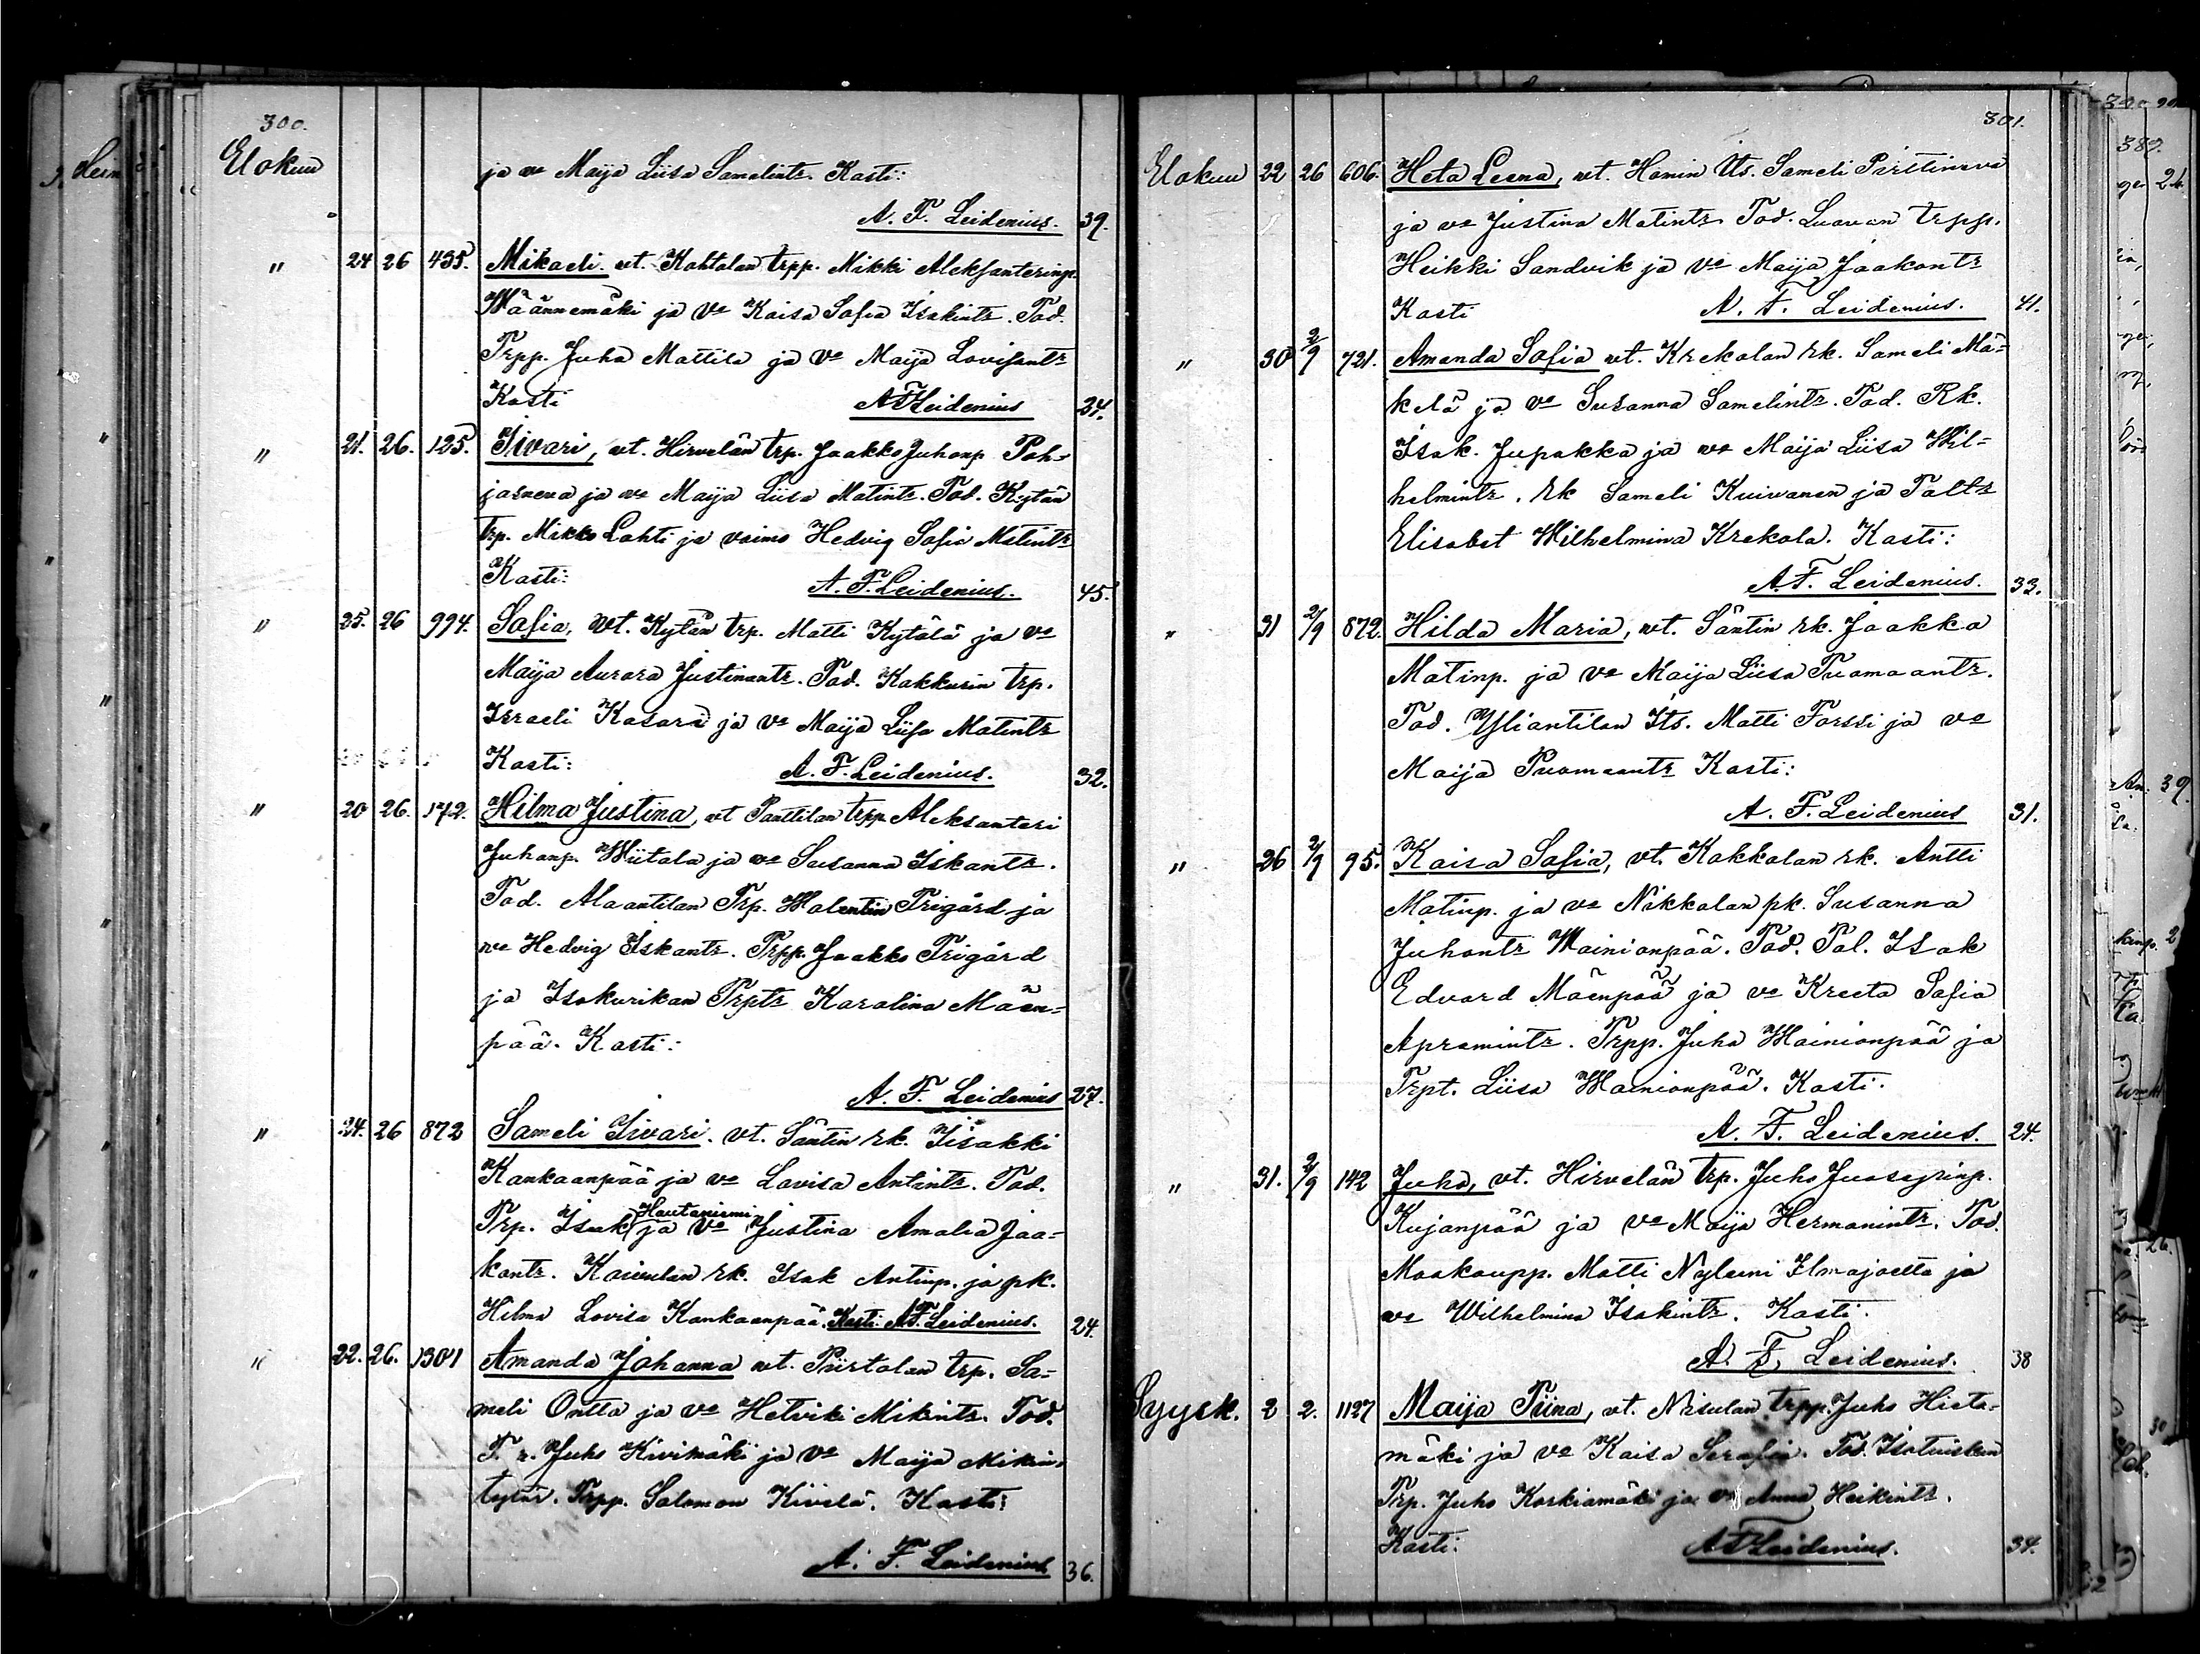 300.
Elokuu
ja vo Maija Liisa Samelintr. Kasti:
A. F. Leidenius. 39.
" 24 26 435. Mikaeli. vt. Kohtalan trpp. Mikki Aleksanterinp.
Wäännemäki ja Vo Kaisa Sofia Isakintr. Tod.
Trpp. Juha Mattila ja Vo Maija Lovisantr
Kasti AFLeidenius 24.
" 21. 26. 125. Iivari, vt. Hirvelän trp. Jaakko Juhonp. Poh-
jasneva ja vo Maija Liisa Matintr. Tod. Kytän
trp. Mikko Lahti ja vaimo Hedvig Sofia Matintr
Kasti: A. F. Leidenius. 45.
" 25. 26 994. Sofia, vt. Kytän trp. Matti Kytälä ja vo
Maija Aurora Justinantr. Tod. Kakkurin trp.
Israeli Kasari ja Vo Maija Liisa Matintr
Kasti: A. F. Leidenius. 32.
" 20 26. 172. Hilma Justina, vt Panttilan trpp Aleksanteri
Juhanp. Wiitala ja vo Susanna Iskantr.
Tod. Alaantilan Trp. Walentin Trigård ja
vo Hedvig Iskantr. Trpp. Jaakko Trigård
ja Isokurikan Trptr Karalina Mäen-
pää. Kasti:
A. F. Leidenius 27.
" 24. 26 872 Sameli Iivari. vt. Säntin rk. Iisakki
Kankaanpää ja vo Lovisa Antintr. Tod.
Trp. Isak Hautaniemi ja Vo Justina Amalia Jaa-
kontr. Koivulan rk. Isak Antinp. ja pk.
Hilma Lovisa Kankaanpää. Kasti: A.F. Leidenius. 24.
" 22. 26. 1301 Amanda Johanna vt. Piirtolan trp. Sa-
meli Ontta ja vo Hetviki Mikintr. Tod.
T. r. Juho Kivimäki ja Vo Maija Mikin-
tytär. Trpp. Salomon Kivelä. Kasti:
A. F. Leidenius 36.
301.
Elokuu 22 26 606. Heta Leena, vt. Honin Its. Sameli Pirttineva
ja vo Justina Matintr. Tod. Luovan trpp.
Heikki Sandvik ja Vo Maija Jaakontr
Kasti A. F. Leidenius. 41.
" 30 2/9 721. Amanda Sofia vt. Krekolan rk. Sameli Mä-
kelä ja vo Susanna Samelintr. Tod. Rk.
Isak. Jupakka ja vo Maija Liisa Wil-
helmintr. rk Sameli Kuivanen ja Taltr
Elisabet Wilhelmina Krekola. Kasti:
A. F. Leidenius. 33.
" 31 2/9 872. Hilda Maria, vt. Säntin rk. Jaakka
Matinp. ja vo Maija Liisa Tuomaantr.
Tod. Yliantilan Its. Matti Forssi ja vo
Maija Tuomaantr Kasti:
A. F. Leidenius 31.
" 26 2/9 95. Kaisa Sofia, vt. Kakkolan rk. Antti
Matinp. ja vo Nikkolan pk. Susanna
Juhontr Wainionpää. Tod. Tal. Isak
Edvard Mäenpää ja vo Kreeta Sofia
Apramintr. Trpp. Juha Wainionpää ja
Trpt. Liisa Wainionpää. Kasti.
A. F. Leidenius. 24.
" 31. 2/9 142 Juho, vt. Hirvelän trp. Juho Juosepinp.
Kujanpää ja vo Maija Hermanintr. Tod.
Maakaupp. Matti Nyluni Ilmajoelta ja
vo Wilhelmina Isakintr. Kasti.
A. F. Leidenius. 38
Syysk. 2 2. 1127 Maija Tiina, vt. Nisulan trpp. Juho Hieta-
mäki ja vo Kaisa Serafia. Tod. Isotuiskun
Trp. Juho Korkiamäki ja vo Anna Heikintr.
Kasti: AFLeidenius. 34.